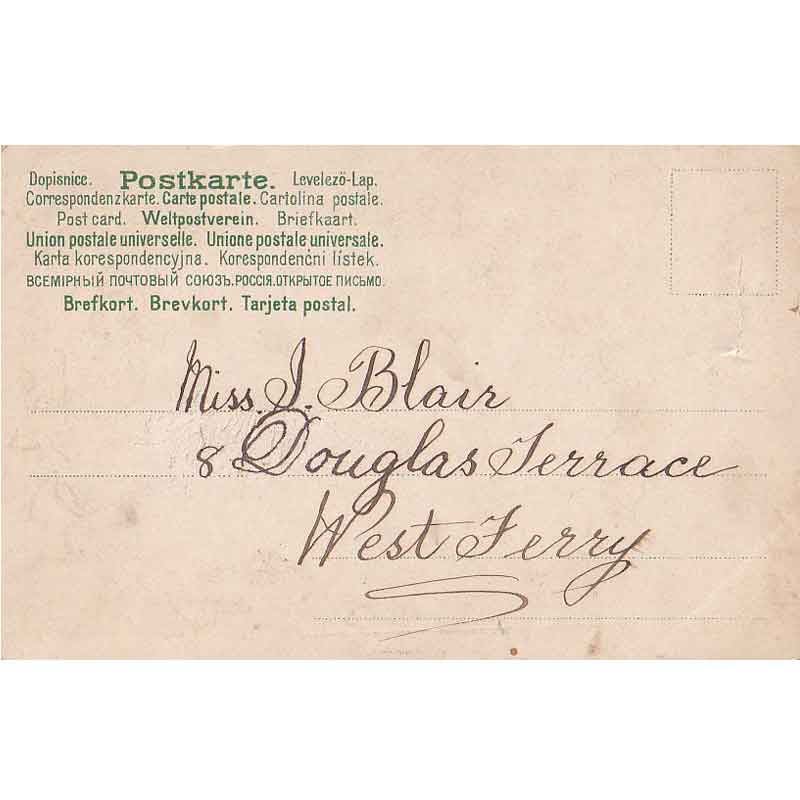 Dopisnice. Postkarte. Levelező-Lap.
Correspondenzkarte. Carte postale. Cartolina postale.
Post card. Weltpostverein. Briefkaart.
Union postale universelle. Unione postale universale.
Karta korespondencyjna. Korespondenčni lístek.
ВСЕМІРНЫЙ ПОЧТОВЫЙ СОЮЗЪ. РОССІЯ. ОТКРЫТОЕ ПИСЬМО.
Brefkort. Brevkort. Tarjeta postal.
Miss. J. Blair
8 Douglas Terrace
West Ferry